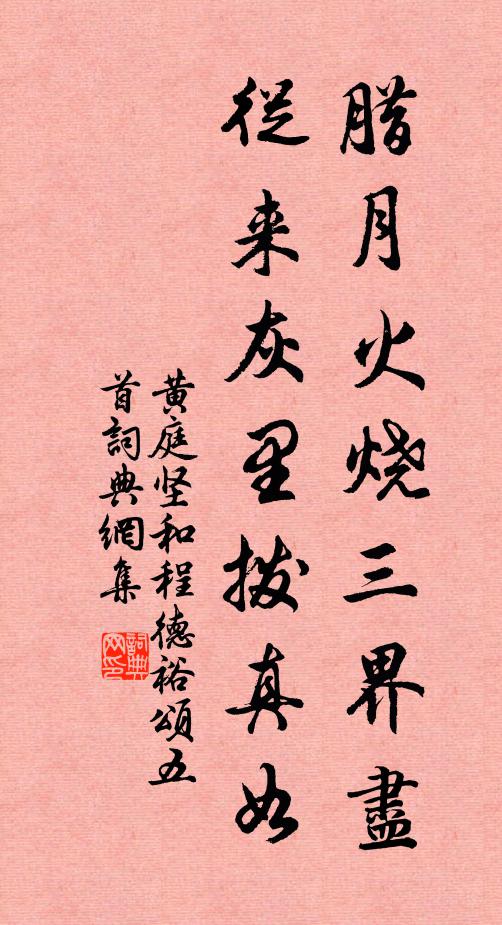 腊月火烧三界盡
從来灰里拨真如
黄庭坚和程德裕頌五
首詞典網集
詞典
网印